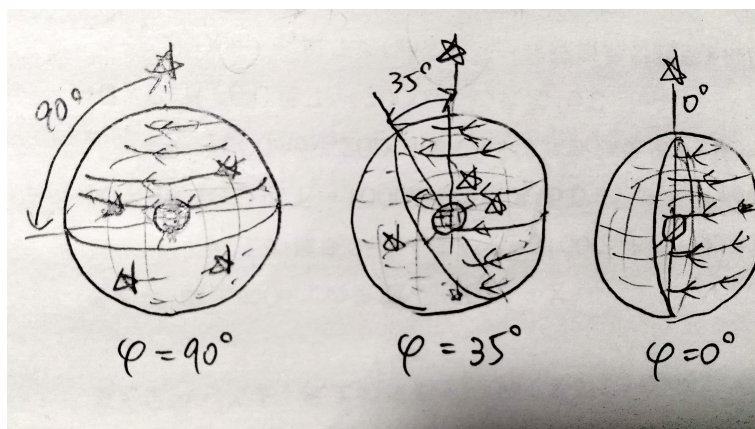 90°
35°
0°
φ = 90°
φ = 35°
φ = 0°